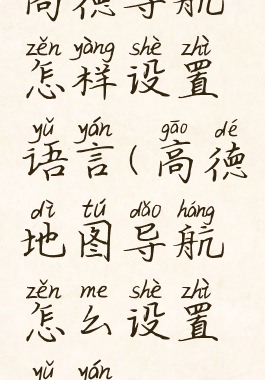 高德导航
zěn yàng shè zhì
怎样设置
yǔ yán gāo dé
语言(高德
dì tú dǎo háng
地图导航
zěn me shè zhì
怎么设置
yǔ yán